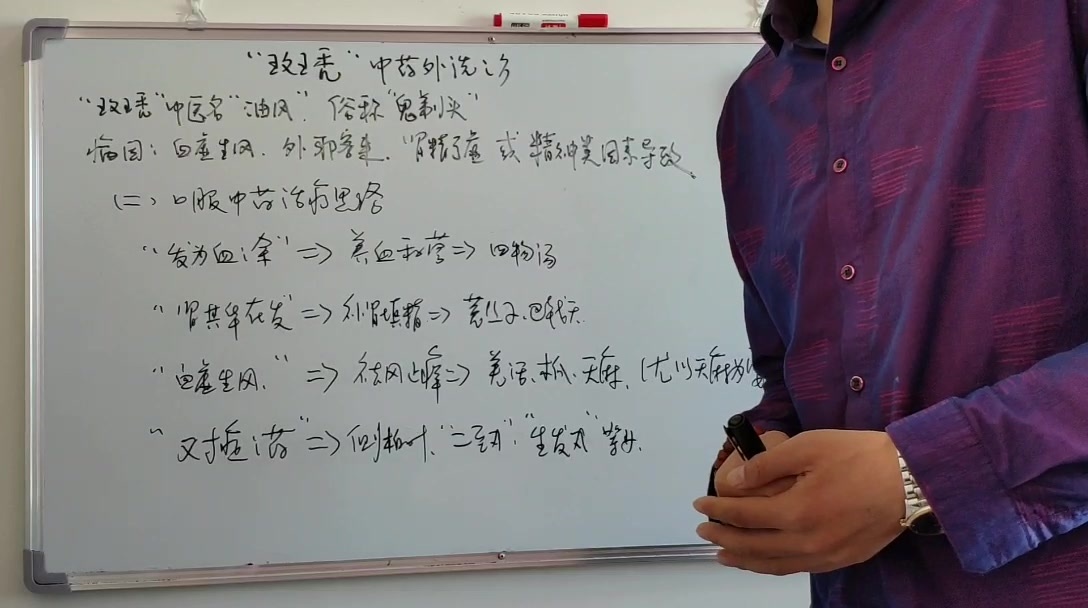 “斑秃”中药外洗方
“斑秃”中医名“油风”. 俗称“鬼剃头”
病因: 血虚生风. 外邪客表. 肾精亏虚 或 精神类因素导致.
(二)、口服中药治疗思路
“发为血之余” => 养血和营 => 四物汤
“肾其华在发” => 补肾填精 => 菟丝子.巴戟天.
“血虚生风.” => 祛风止痒 => 羌活.木瓜.天麻. (尤以天麻为
“对症治药” => 侧柏叶.“二至丸”.“生发丸”等.